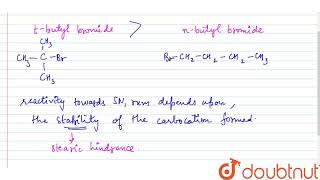 t-butyl bromide > n-butyl bromide
CH3
CH3 - C - Br
CH3
Br-CH2 - CH2 - CH2 - CH3
reactivity towards SN1 rxns depends upon,
the stability of the carbocation formed.
stearic hindrance.
doubtnut